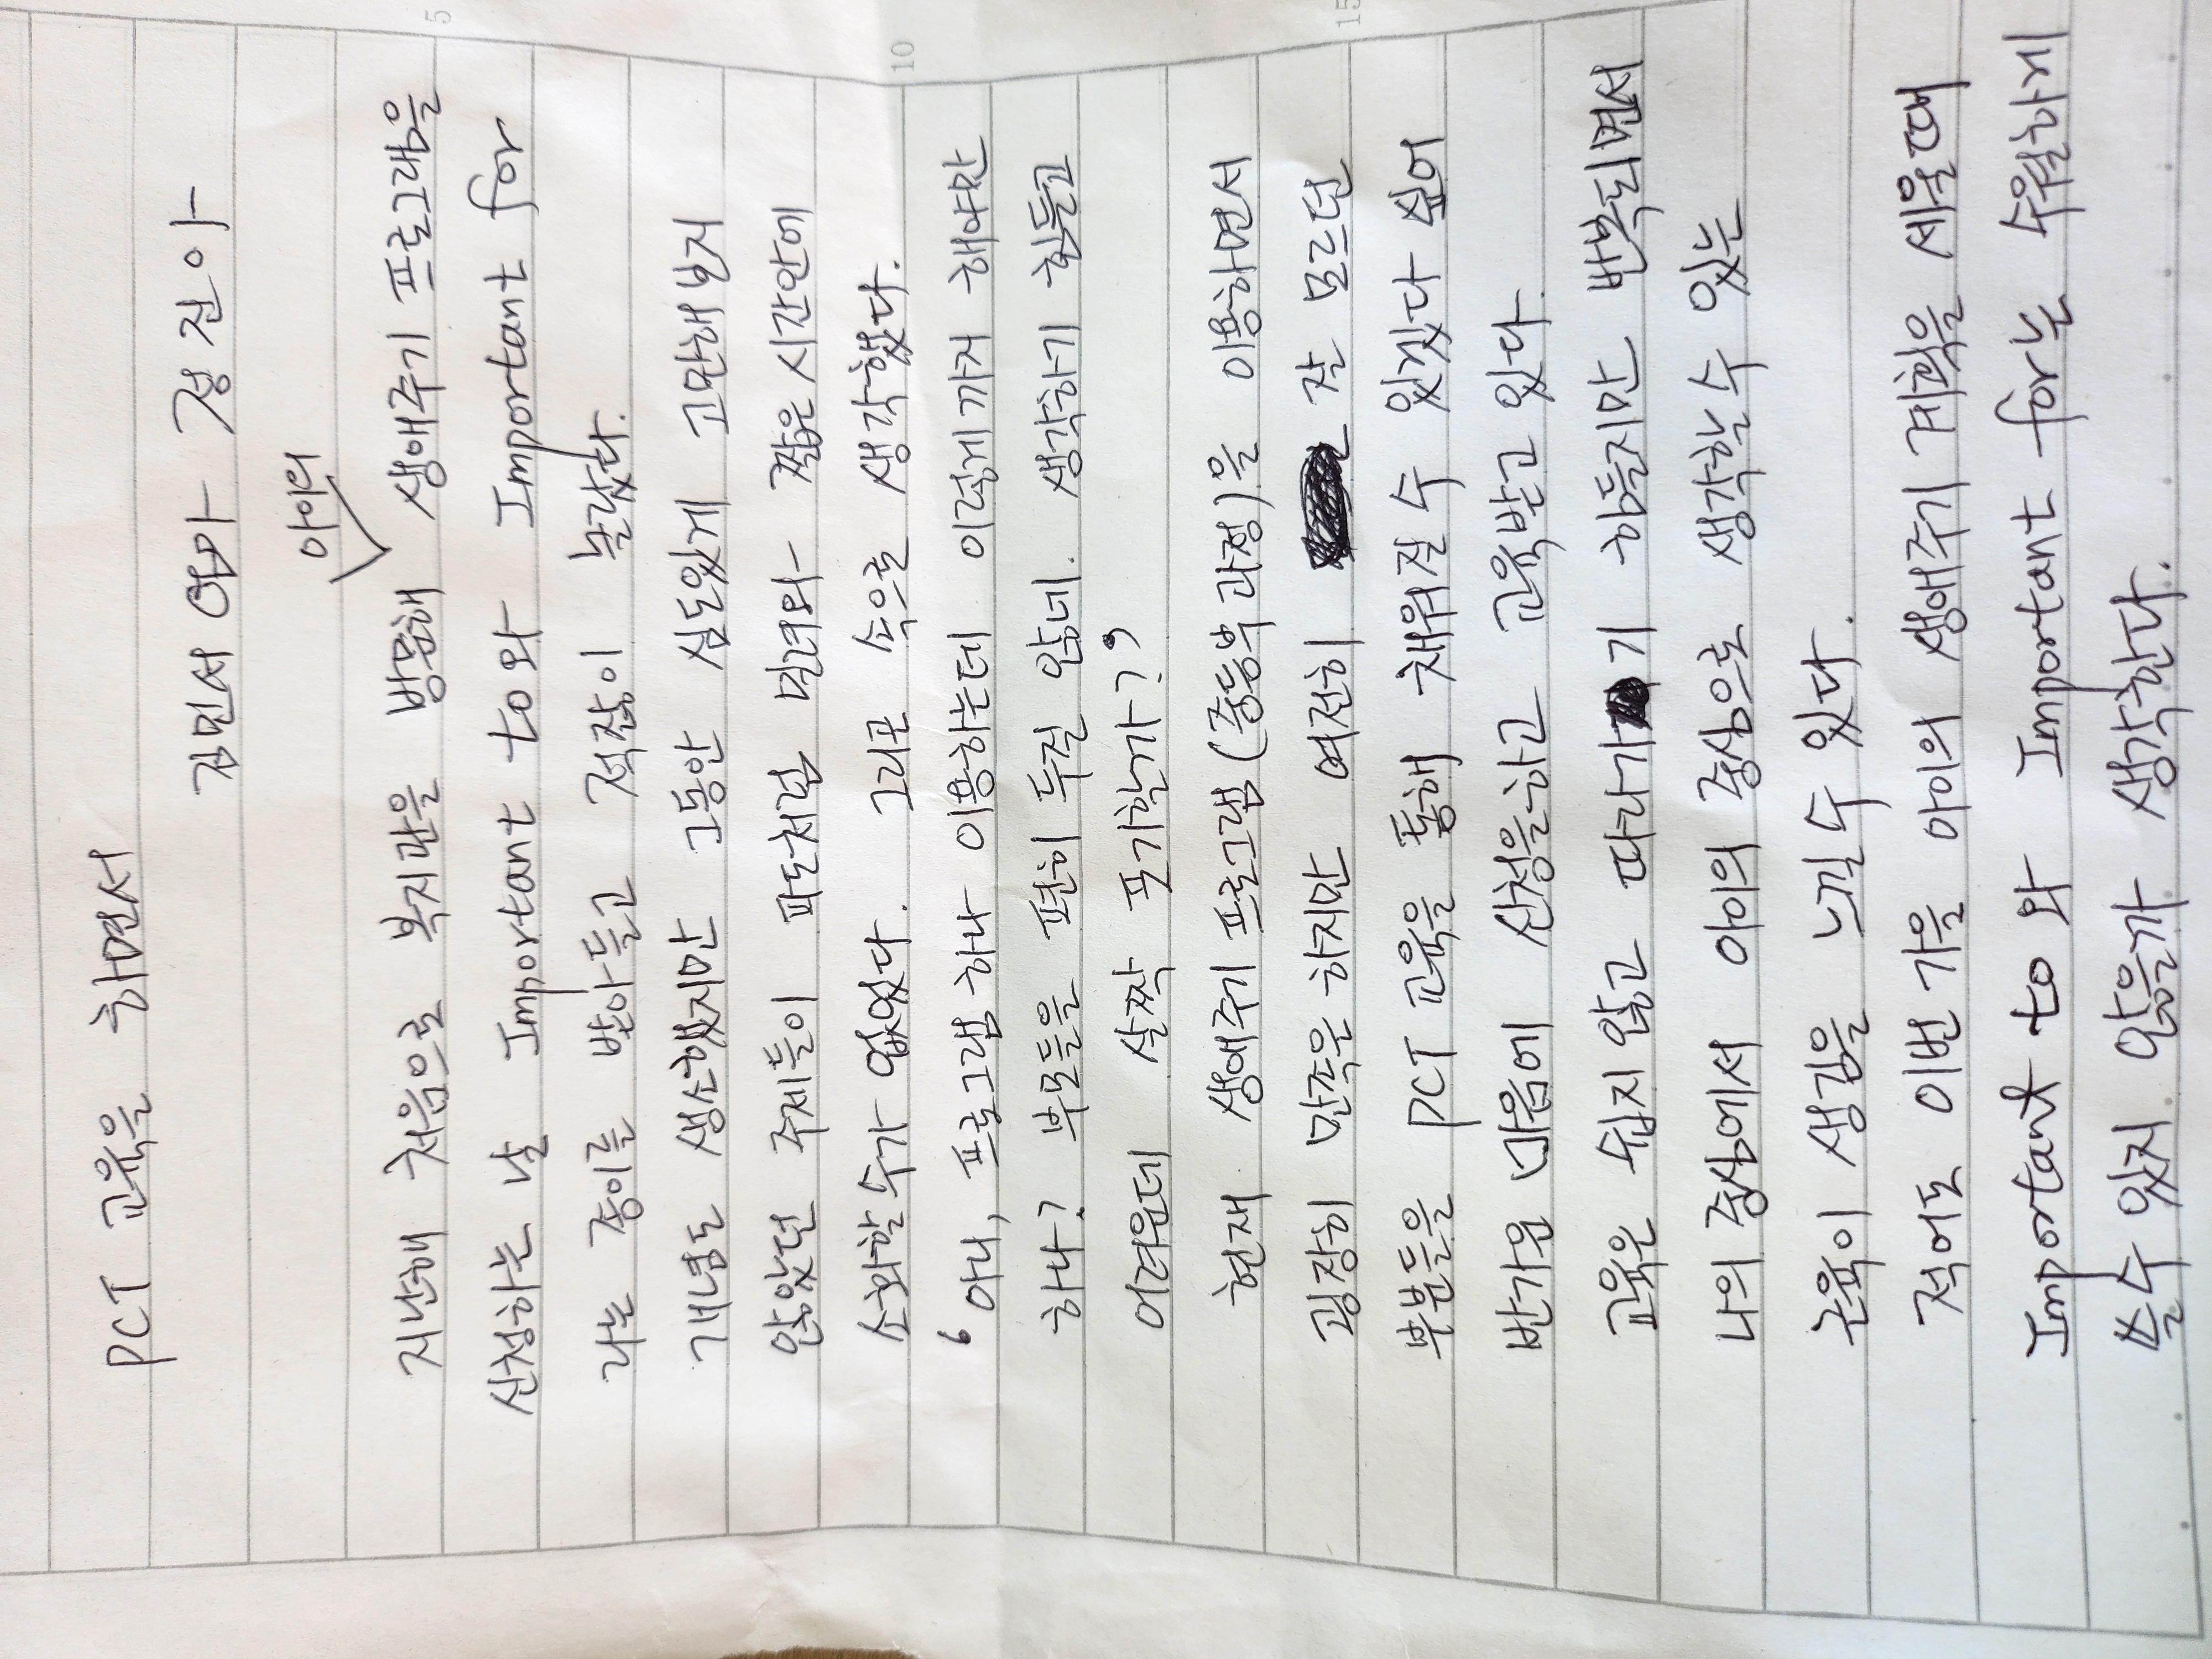 PCT 교육을 하면서
김민서 엄마 정진아
아이의
지난해 처음으로 복지관을 방문해 생애주기 프로그램을
신청하는 날 Important to와 Important for
라는 종이를 받아들고 적잖이 놀랐다.
개념도 생소했지만 그동안 심도있게 고민해보지
않았던 주제들이 파도처럼 밀려와 짧은 시간안에
소화할 수가 없었다. 그리곤 속으로 생각했다.
'아니, 프로그램 하나 이용하는데 이렇게까지 해야만
하나? 부모들을 편히 두질 않네. 생각하기 힘들고
어려운데 살짝 포기할까?'
현재 생애주기 프로그램(중등부 과정)을 이용하면서
굉장히 만족은 하지만 여전히 잘 모르던
부분들을 PCT 교육을 통해 채워질 수 있겠다 싶어
반가운 마음에 신청을하고 교육받고 있다.
교육은 쉽지않고 따라가기 힘들지만 반복되면서
나의 중심에서 아이의 중심으로 생각할 수 있는
근육이 생김을 느낄수 있다.
적어도 이번 가을 아이의 생애주기 계획을 세울때
Important to 와 Important for는 수월하게
쓸수 있지 않을까 생각한다.